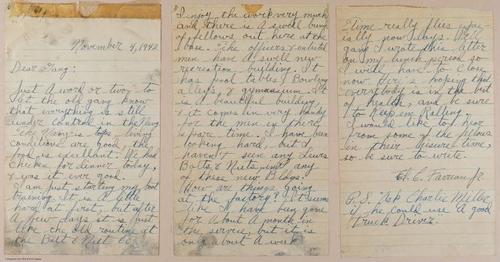 November 4, 1942
Dear Gang:
Just a word or two, to
let the old gang know
that everything is still
under control in the Navy.
The Navy is tops, living
conditions are good, the
food is excellent. We had
chicken for dinner today,
& was it ever good.
I am just starting my boot
training. It is a little
hard at first, but after
a few days it is just
like the old routine at
the Bolt & Nut Co.
I enjoy the work very much
and there is a swell bunch
of fellows out here at the
base. The officers & enlisted
men have a swell new
recreation building. It
has pool tables, Bowling
alleys, & gymnasium. It
is a beautiful building,
& it comes in very handy
for the men in their
spare time. I have been
looking hard, but I
haven't seen any Lewis
Bolts & Nuts in any
of these new Bldgs.
How are things going
at the factory? It seems
like I have been gone
for about a month in
the service, but it is
only about a week
Time really flies espe-
cially now days. Well
gang I wrote this letter
on my lunch period so
I will have to close
now. Here's hoping that
everybody is in the best
of health, and be sure
to Keep em Rolling.
I would like to hear
from some of the fellows
in their leisure time,
so be sure to write.
Jr.
P.S. Ask Charlie Miller
if he could use a good
Truck Driver.